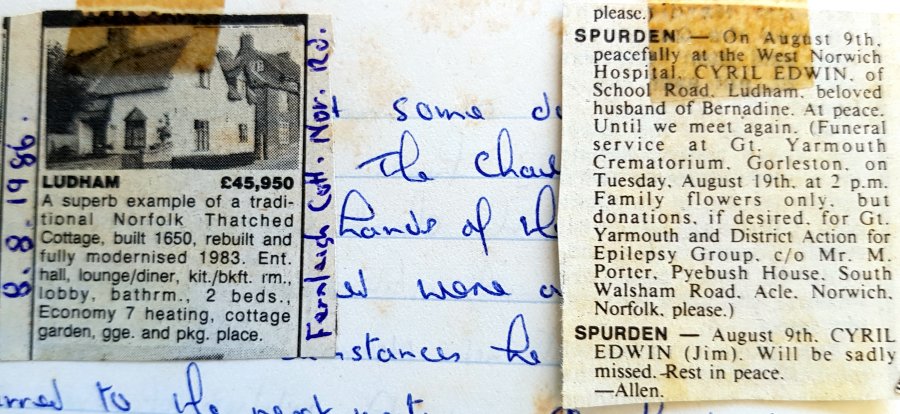 8.8.1986.
LUDHAM £45,950
A superb example of a tradi-
tional Norfolk Thatched
Cottage, built 1650, rebuilt and
fully modernised 1983. Ent.
hall, lounge/diner, kit./bkft. rm.,
lobby, bathrm., 2 beds.,
Economy 7 heating, cottage
garden, gge. and pkg. place.
Fernleigh Cott. Nor. Rd.
some
The
hands of the
were
instances he
to the
please.)
SPURDEN — On August 9th,
peacefully at the West Norwich
Hospital, CYRIL EDWIN, of
School Road, Ludham, beloved
husband of Bernadine. At peace.
Until we meet again. (Funeral
service at Gt. Yarmouth
Crematorium, Gorleston, on
Tuesday, August 19th, at 2 p.m.
Family flowers only, but
donations, if desired, for Gt.
Yarmouth and District Action for
Epilepsy Group, c/o Mr. M.
Porter, Pyebush House, South
Walsham Road, Acle, Norwich,
Norfolk, please.)
SPURDEN — August 9th, CYRIL
EDWIN (Jim). Will be sadly
missed. Rest in peace.
—Allen.